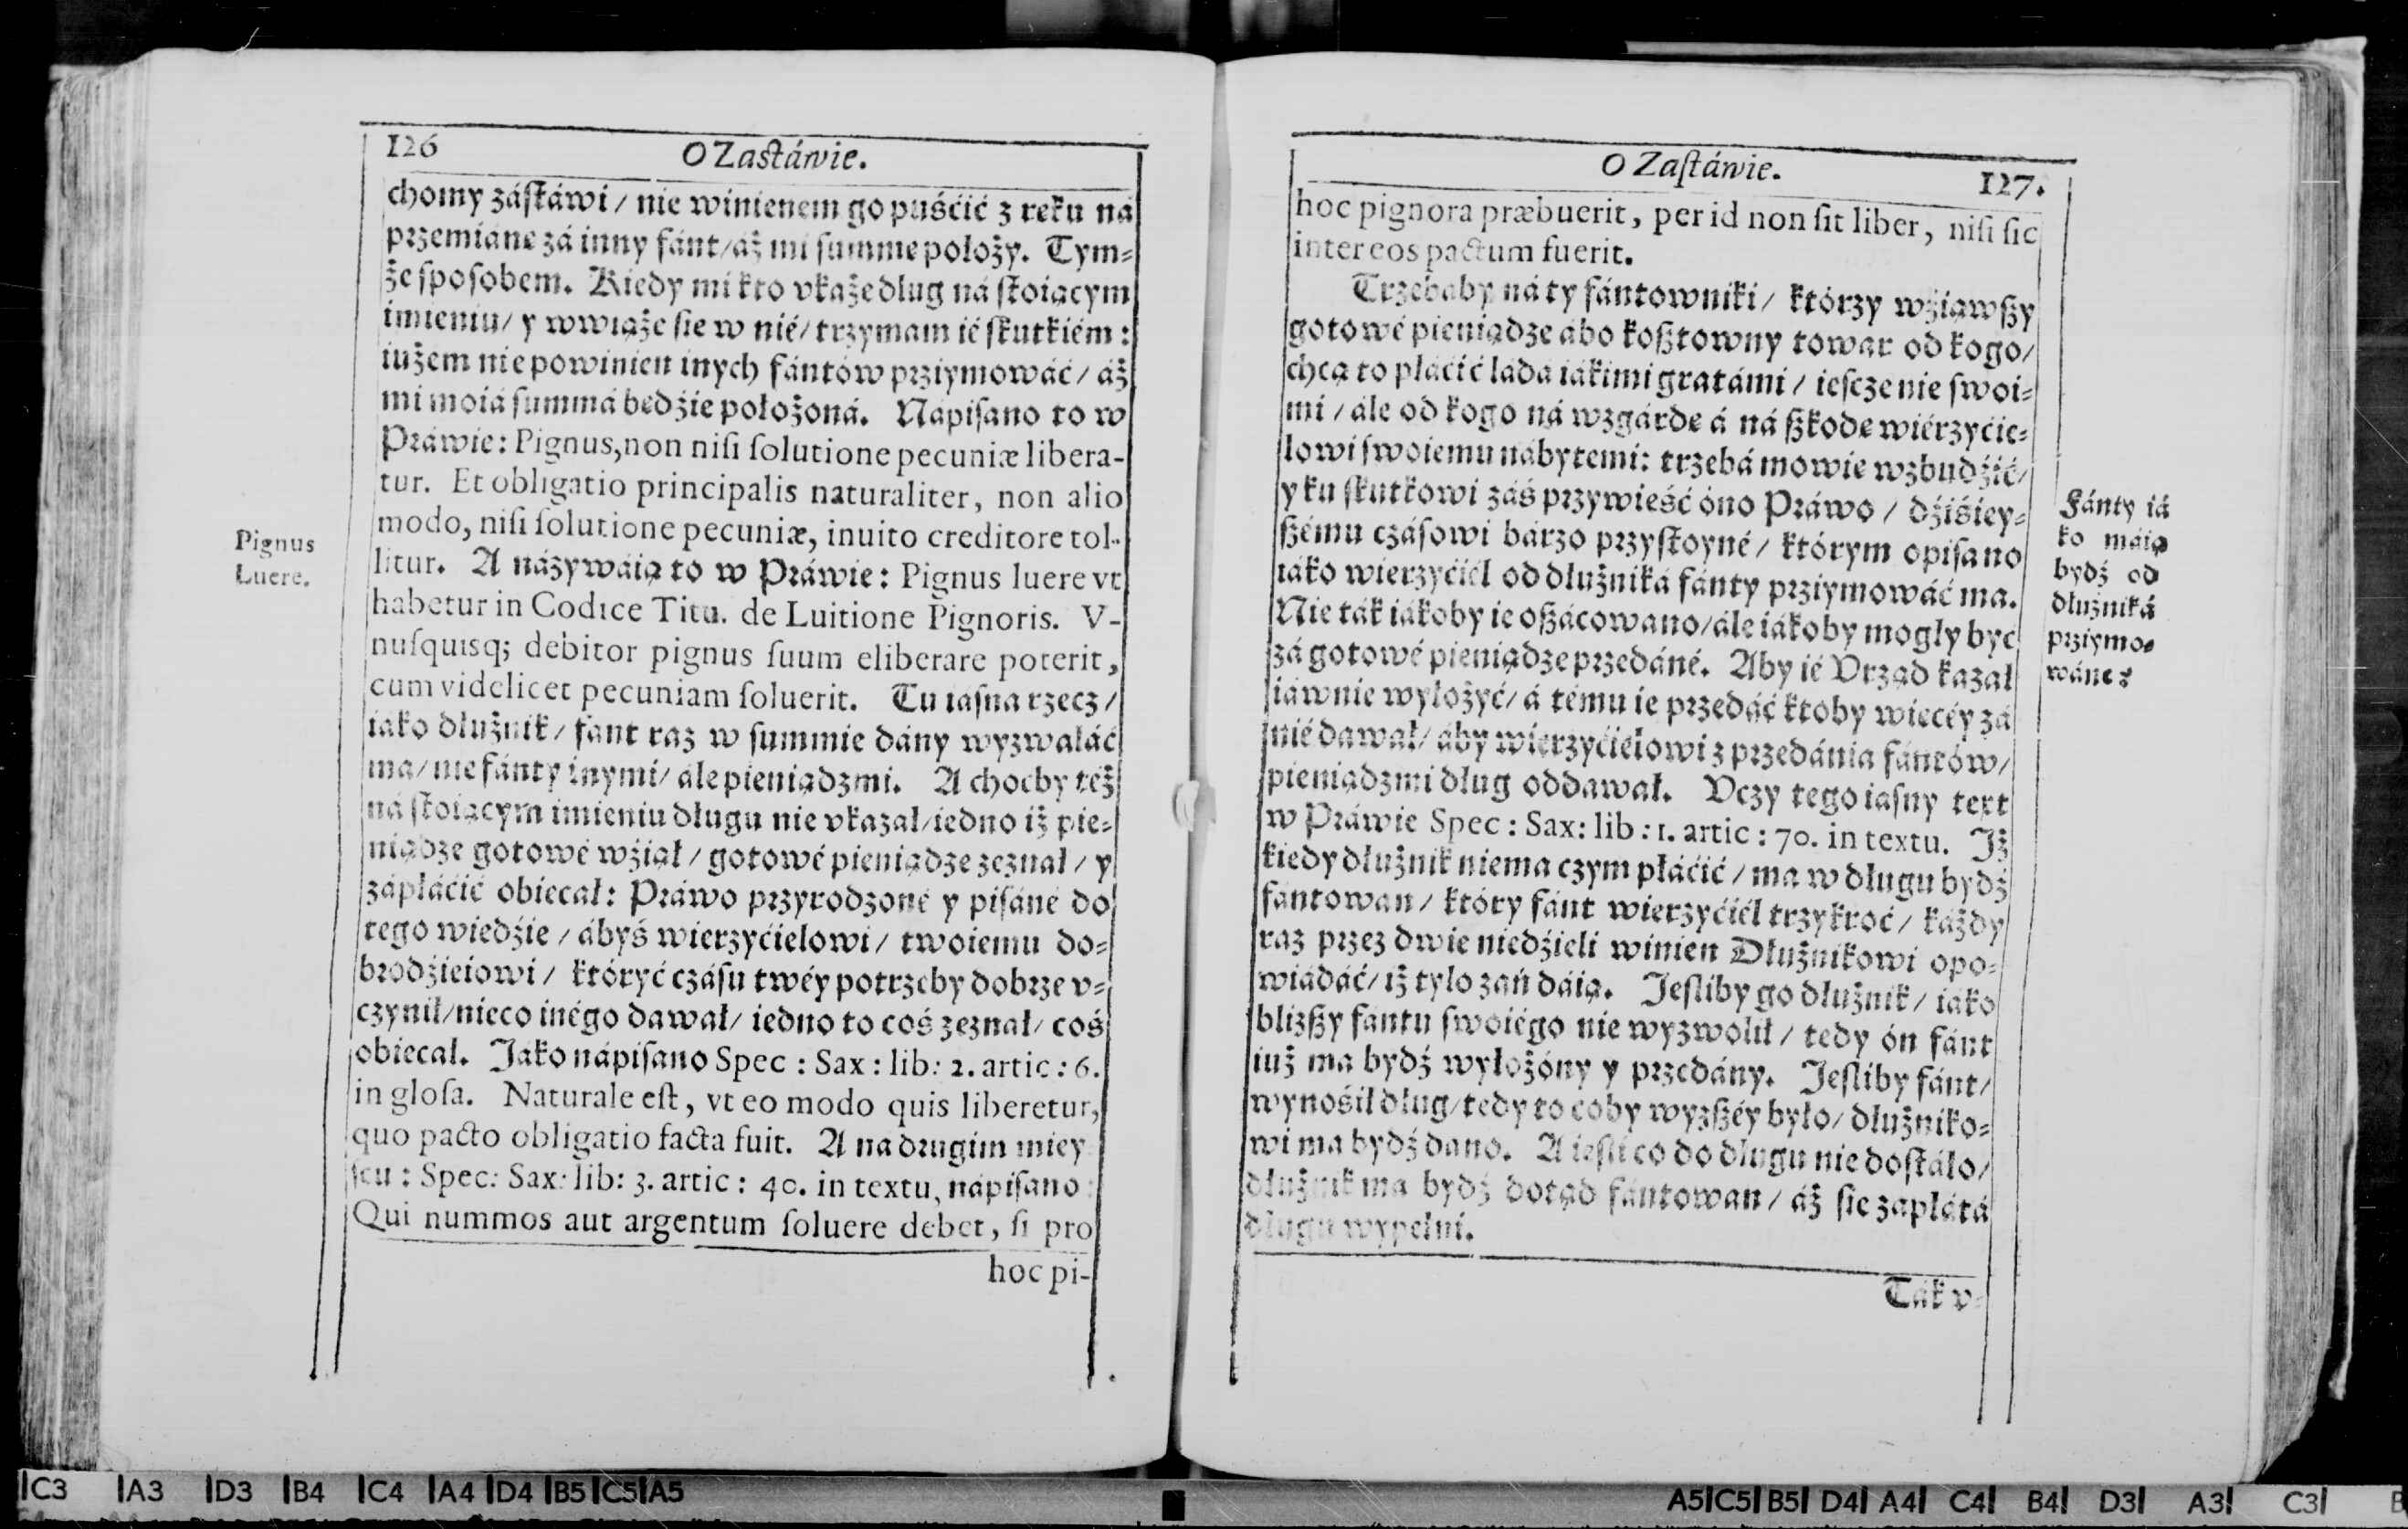 126
O Zastáwie.
chomy zástáwi / nie winienem go puśćić z reku ná
przemiáne zá inny fánt / áż mi summe położy. Tym=
że sposobem. Kiedy mi kto vkaże dlug ná stoiącym
imieniu / y wwiąże sie w nié / trzymam ié skutkiém :
iużem nie powinien inych fántów prziymowáć / áż
mi moiá summá bedźie położoná. Nápisano to w
Práwie: Pignus, non nisi solutione pecuniæ libera-
tur. Et obligatio principalis naturaliter, non alio
modo, nisi solutione pecuniæ, inuito creditore tol-
litur. A názywáią to w Práwie: Pignus luere vt
habetur in Codice Titu. de Luitione Pignoris. V-
nusquisq; debitor pignus suum eliberare poterit,
cum videlicet pecuniam soluerit. Tu iasna rzecz /
iáko dłużnik / fánt raz w summie dány wyzwaláć
ma / nie fánty inymi / ále pieniądzmi. A choćby téż
ná stoiącym imieniu długu nie vkazał / iedno iż pie=
niądze gotowé wźiął / gotowé pieniądze zeznał / y
zápłáćić obiecał: Práwo przyrodzoné y pisáné do
tego wiedźie / ábyś wierzyćielowi / twoiemu do=
brodźieiowi / któryć czásu twéy potrzeby dobrze v=
czynił / nieco inégo dawał / iedno to coś zeznał / coś
obiecał. Jáko nápisano Spec : Sax : lib: 2. artic : 6.
in glosa. Naturale est, vt eo modo quis liberetur,
quo pacto obligatio facta fuit. A na drugim miey
scu : Spec: Sax: lib: 3. artic : 40. in textu, nápisano :
Qui nummos aut argentum soluere debet, si pro
hoc pi-
Pignus
Luere.
O Zastáwie.
127.
hoc pignora præbuerit, per id non sit liber, nisi sic
inter eos pactum fuerit.
Trzebáby ná ty fántowniki / którzy wźiąwszy
gotowé pieniądze ábo kosztowny towar od kogo /
chcą to płáćić ladá iákimi gratámi / iescze nie swoi=
mi / ále od kogo ná wzgárde á ná szkode wiérzyćie=
lowi swoiemu nábytemi: trzebá mowie wzbudźić /
y ku skutkowi záś przywieść óno Práwo / dźiśiey=
szému czásowi bárzo przystoyné / którym opisano
iáko wierzyćiél od dłużniká fánty prziymowáć ma.
Nie ták iákoby ie oszácowano / ále iákoby mogły być
zá gotowé pieniądze przedáné. Aby ié Vrząd kazał
iáwnie wyłożyć / á tému ie przedáć ktoby wiecéy zá
nié dawał / áby wierzyćielowi z przedánia fántów /
pieniądzmi dług oddawał. Vczy tego iasny text
w Práwie Spec : Sax: lib : 1. artic : 70. in textu. Iż
kiedy dłużnik niema czym płáćić / ma w długu bydź
fántowan / który fánt wierzyćiél trzykroć / káżdy
raz przez dwie niedźieli winien Dłużnikowi opo=
wiádáć / iż tylo zań dáią. Jesliby go dłużnik / iáko
bliższy fántu swoiégo nie wyzwolił / tedy ón fánt
iuż ma bydź wyłożóny y przedány. Jesliby fánt /
wynośił dług / tedy to coby wyzszéy było / dłużniko=
wi ma bydź dano. A iesli co do długu nie dostáło /
dłużnik ma bydź dotąd fántowan / áż sie zapłátá
długu wypełni.
Ták v-
Fánty iá
ko máią
bydź od
dłużniká
prziymo=
wáne:
C3 A3 D3 B4 C4 A4 D4 B5 C5 A5
A5 C5 B5 D4 A4 C4 B4 D3 A3 C3 B